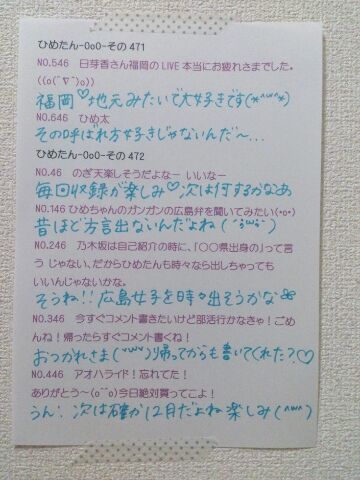 ひめたん-OoO-その471
NO.546　日芽香さん福岡のLIVE本当にお疲れさまでした。
((o(´∇`)o))
福岡♡地元みたいで大好きです(*^w^*)
NO.646　ひめ太
その呼ばれ方好きじゃないんだ〜...
ひめたん-OoO-その472
NO.46　のぎ天楽しそうだよなー　いいなー
毎回収録が楽しみ♡次は何するかなぁ
NO.146ひめちゃんのガンガンの広島弁を聞いてみたい(・o・)
昔ほど方言出ないんだよね(´・ω・`)
NO.246　乃木坂は自己紹介の時に、「〇〇県出身の」って言
う じゃない、だからひめたんも時々なら出しちゃっても
いいんじゃないかな。
そうね!!広島女子を時々出そうかな
NO.346　今すぐコメント書きたいけど部活行かなきゃ！ごめ
んね！帰ったらすぐコメント書くね！
おつかれさま(^w^)帰ってからも書いてくれた?♡
NO.446　アオハライド！忘れてた！
ありがとう〜(o^^o)今日絶対買ってこよ！
うん!次は確か12月だよね楽しみ(^w^)